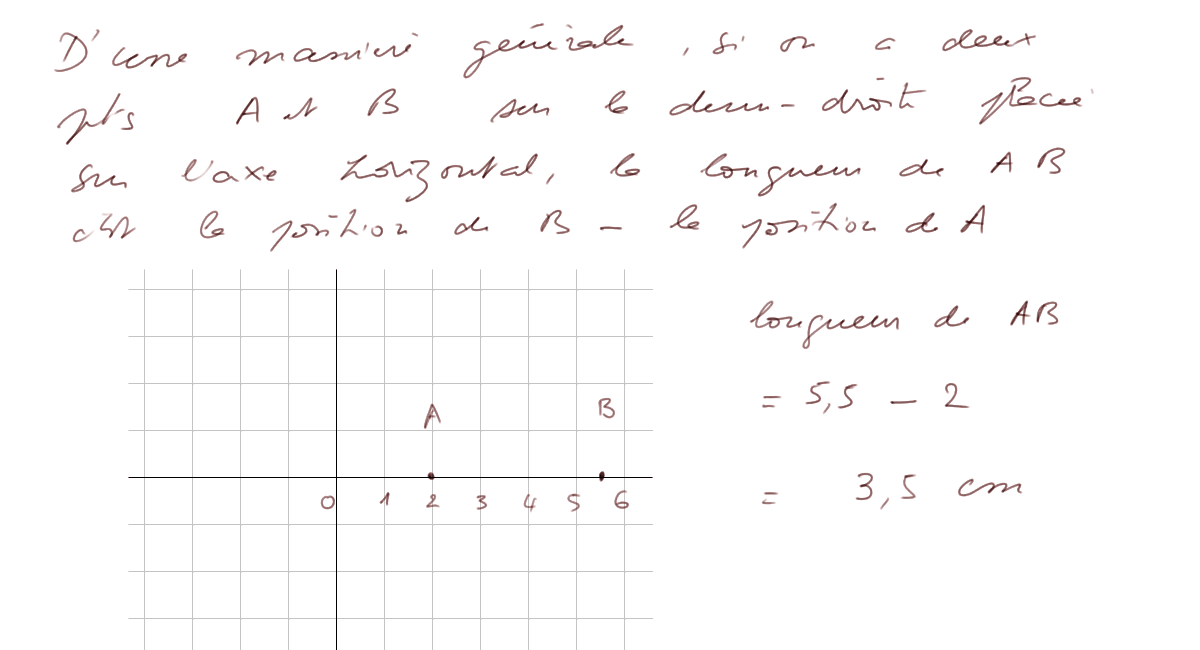 D'une manière générale, si on a deux
pts A et B sur la demi-droite placée
sur l'axe horizontal, la longueur de AB
c'est la position de B - la position de A
longueur de AB
= 5,5 - 2
A B
0 1 2 3 4 5 6
= 3,5 cm